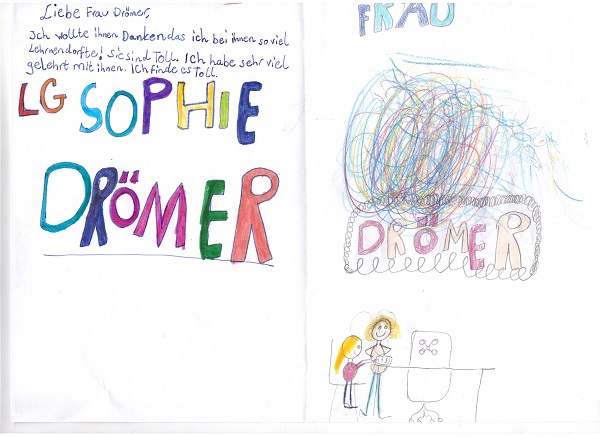 Liebe Frau Drömer,
Ich wollte ihnen Danken das ich bei ihnen so viel
Lehrnen dorfte! Sie sind Toll. Ich habe sehr viel
gelehrt mit ihnen. Ich finde es Toll.
LG SOPHIE
DRÖMER
FRAU
DRÖMER